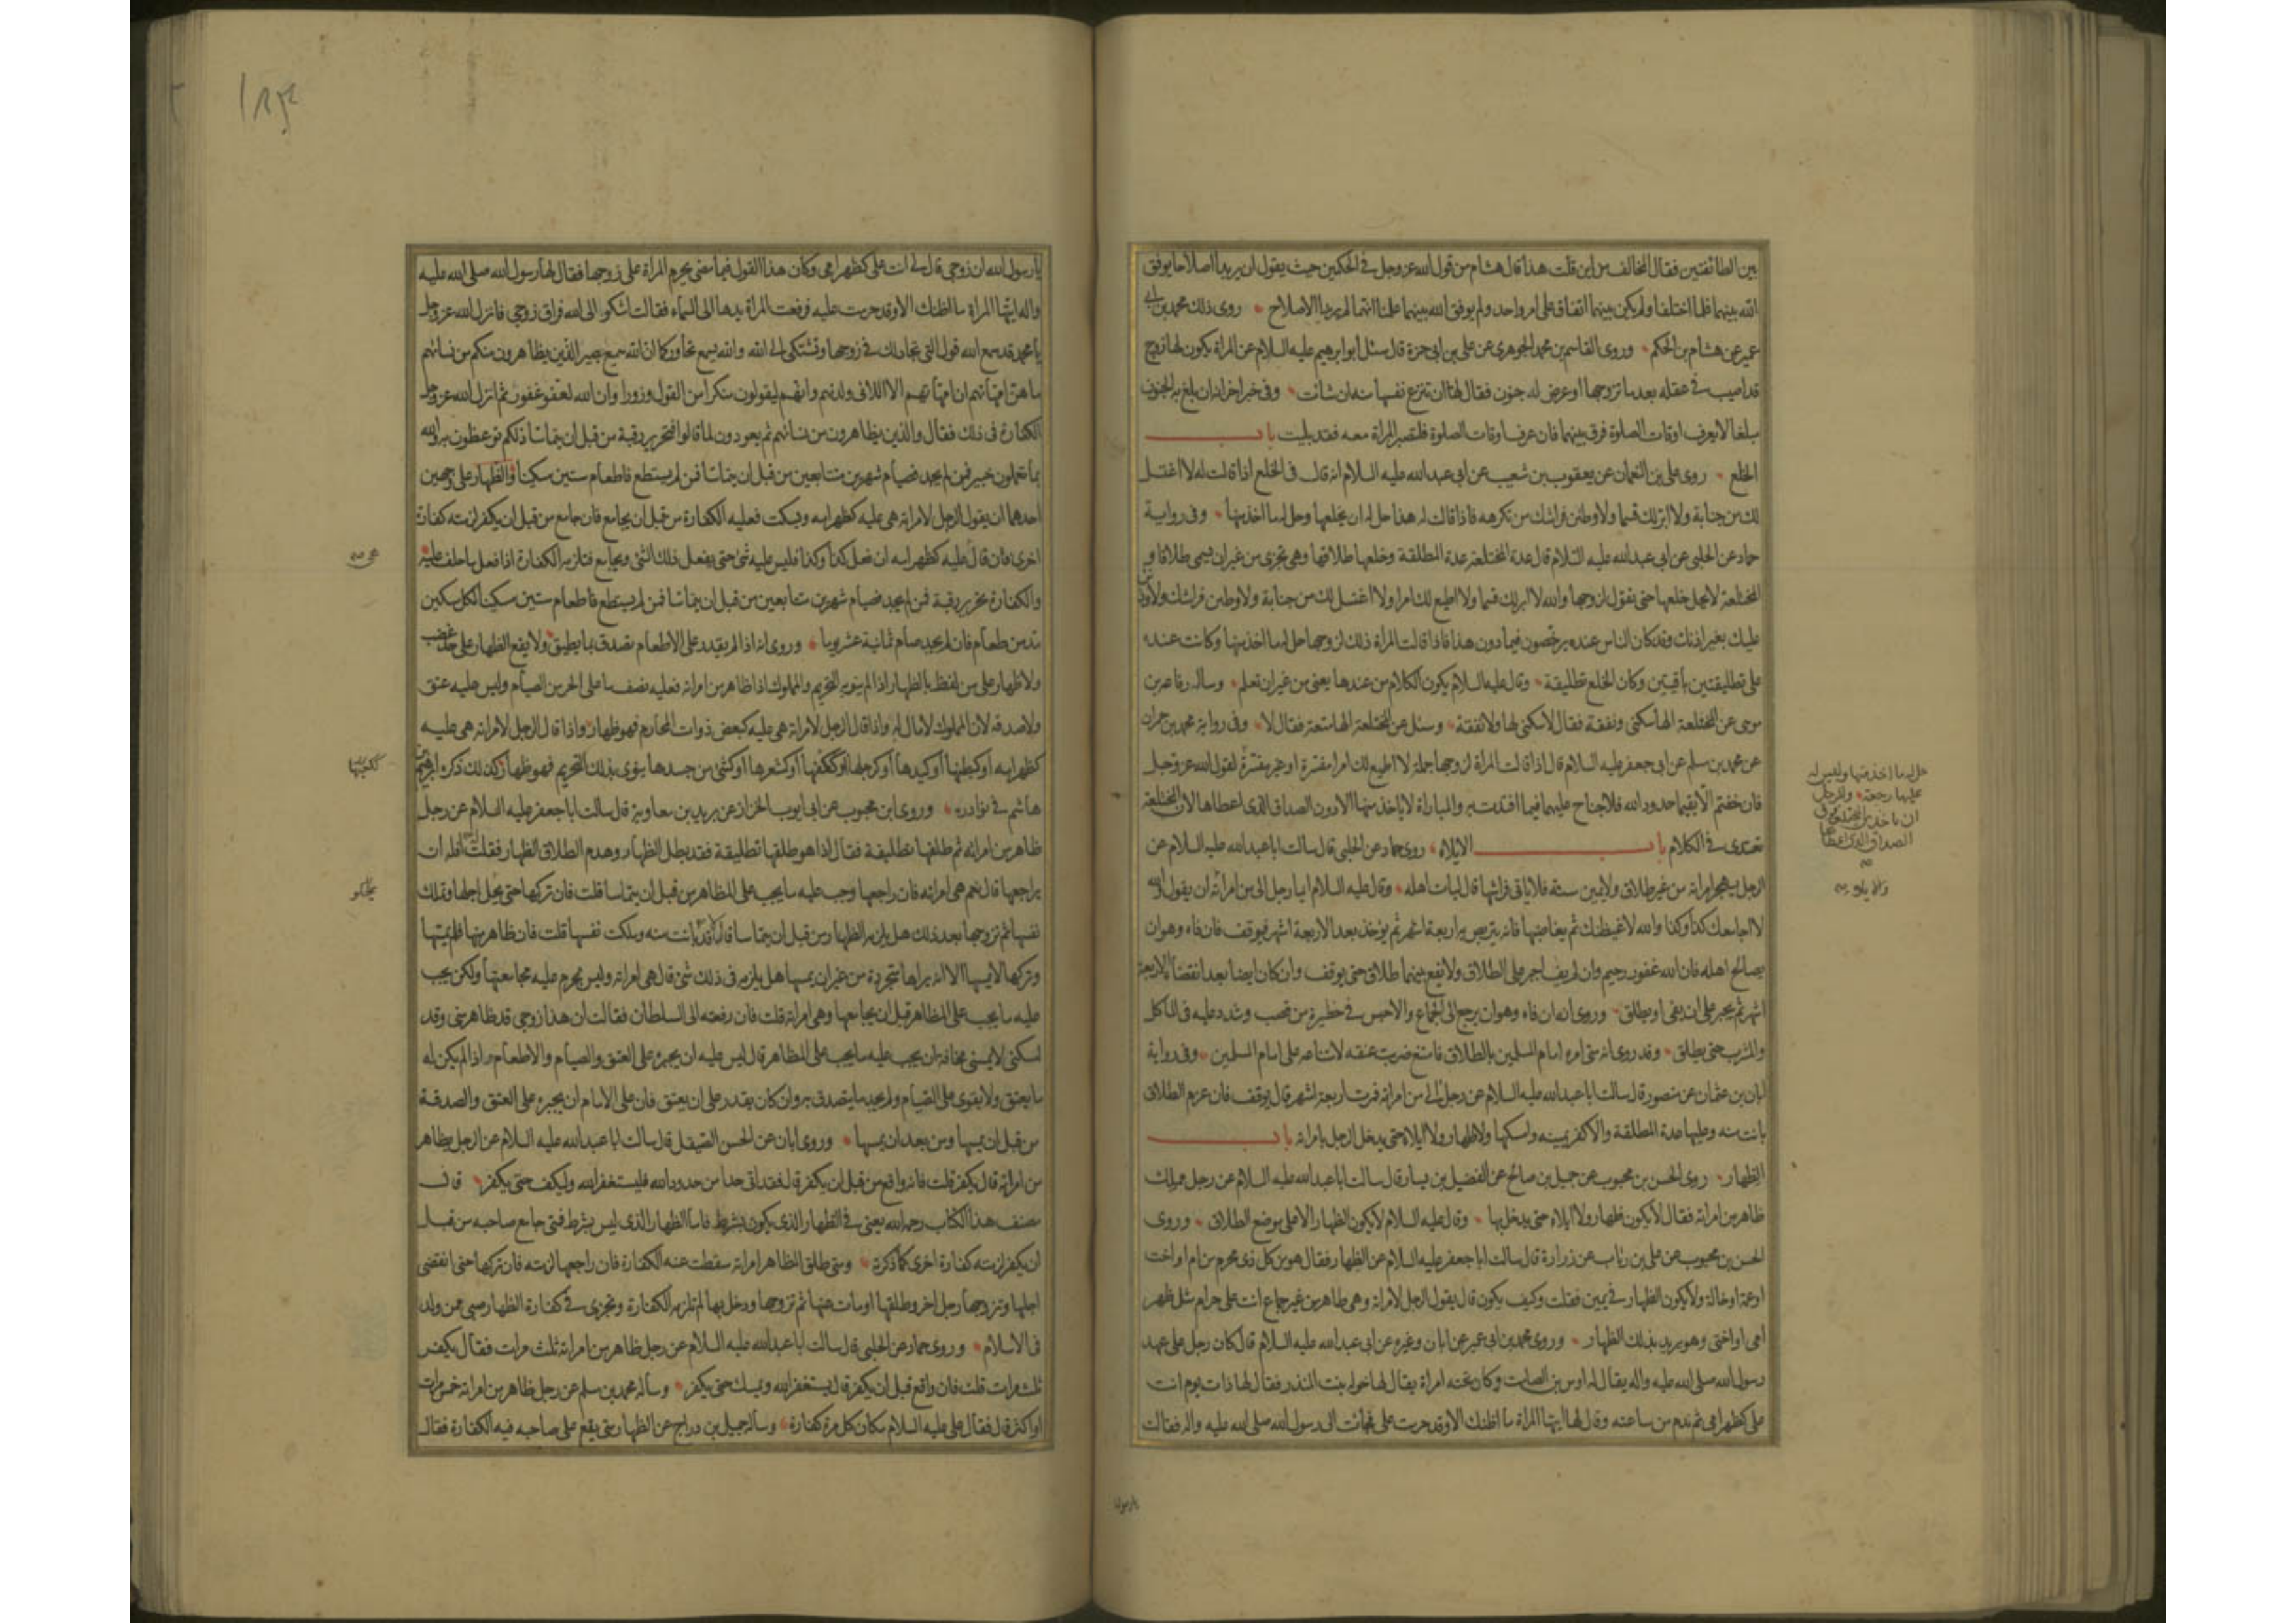 بين الطائفتين فقال المخالف من اين قلت هذا قال هشام من قول الله عزوجل في الحكمين حيث يقول ان يريدا اصلاحا يوفق
الله بينهما فلما اختلفا ولم يكن بينهما اتفاق على امر واحد ولم يوفق الله بينهما علمنا انهما لم يريدا الاصلاح روى ذلك محمد بن ابي
عمير عن هشام بن الحكم وروى القاسم بن محمد الجوهرى عن على بن ابى حمزة قال سئل ابو ابرهيم عليه السلام عن المراة يكون لها زوج
قد اصيب في عقله بعد ما تزوجها او عرض له جنون فقال لها ان تنزع نفسها منه ان شائت وفى خبر اخر انه ان بلغ به الجنون
مبلغا لا يعرف اوقات الصلوة فرق بينهما فان عرف اوقات الصلوة فلتصبر المراة معه فقد بليت باب
الخلع روى على بن النعمان عن يعقوب بن شعيب عن ابى عبد الله عليه السلام انه قال فى الخلع اذا قالت له لا اغتسل
لك من جنابة ولا ابر لك قسما ولاوطئن فراشك من تكرهه فاذا قالت له هذا حل له ان يخلعها وحل له ما اخذ منها وفى رواية
حماد عن الحلبى عن ابى عبد الله عليه السلام قال عدة المختلعة عدة المطلقة وخلعها طلاقها وهى تجزى من غير ان يسمى طلاقا و
المختلعة لا يحل خلعها حتى تقول لزوجها والله لا ابر لك قسما ولا اطيع لك امرا ولا اغتسل لك من جنابة ولاوطئن فراشك ولاوذنن
عليك بغير اذنك وقد كان الناس عنده يرخصون فيما دون هذا فاذا قالت المرأة ذلك لزوجها حل له ما اخذ منها وكانت عنده
على تطليقتين باقيتين وكان الخلع تطليقة وقال عليه السلام يكون الكلام من عندها يعنى من غير ان تعلم وساله رفاعة بن
موسى عن المختلعة الها سكنى ونفقة فقال لا سكنى لها ولا نفقة وسئل عن المختلعة الها متعة فقال لا وفى رواية محمد بن حمران
عن محمد بن مسلم عن ابى جعفر عليه السلام قال اذا قالت المراة لزوجها جملة لا اطيع لك امرا مفسرة او غير مفسرة لقول الله عز وجل
فان خفتم الا يقيما حدود الله فلا جناح عليهما فيما افتدت به والمباراة لا ياخذ منها الا دون الصداق الذى اعطاها لان المختلعة
تعتدى في الكلام باب الايلاء روى حماد عن الحلبى قال سالت ابا عبد الله عليه السلام عن
الرجل يهجر امراته من غير طلاق ولا يمين سنة فلا ياتى فراشها قال ليات اهله وقال عليه السلام ايما رجل الى من امرأته ان يقول والله
لا اجامعك كذا وكذا والله لاغيظنك ثم يغاضبها فانه يتربص به اربعة اشهر ثم يؤخذ بعد الاربعة اشهر فيوقف فان فاء وهو ان
يصالح اهله فان الله غفور رحيم وان لم يف اجبر على الطلاق ولا يقع بينهما طلاق حتى يوقف وان كان ايضا بعد انقضاء الاربعة
اشهر ثم يجبر على ان يفى او يطلق وروى انه ان فاء وهو ان يرجع الى الجماع والا حبس في حظيرة من قصب وشدد عليه فى الماكل
والمشرب حتى يطلق وقد روى انه متى امره امام المسلمين بالطلاق فامتنع ضربت عنقه لامتناعه على امام المسلمين وفى رواية
ابان بن عثمان عن منصور قال سالت ابا عبد الله عليه السلام عن رجل الى من امراته فمرت اربعة اشهر قال يوقف فان عزم الطلاق
بانت منه وعليها عدة المطلقة والا كفر يمينه وامسكها ولا ظهار ولا ايلاء حتى يدخل الرجل بامراته باب
الظهار روى الحسن بن محبوب عن جميل بن صالح عن الفضيل بن يسار قال سالت ابا عبد الله عليه السلام عن رجل مملك
ظاهر من امراته فقال لا يكون ظهار ولا ايلاء حتى يدخل بها وقال عليه السلام لا يكون الظهار الا على موضع الطلاق وروى
الحسن بن محبوب عن على بن رئاب عن زرارة قال سالت ابا جعفر عليه السلام عن الظهار فقال هو من كل ذى محرم من ام او اخت
او عمة او خالة ولا يكون الظهار في يمين فقلت وكيف يكون قال يقول الرجل لامراته وهى طاهر من غير جماع انت على حرام مثل ظهر
امى او اختى وهو يريد بذلك الظهار وروى محمد بن ابى عمير عن ابان وغيره عن ابى عبد الله عليه السلام قال كان رجل على عهد
رسول الله صلى الله عليه واله يقال له اوس بن الصامت وكان تحته امراة يقال لها خولة بنت المنذر فقال لها ذات يوم انت
على كظهر امى ثم ندم من ساعته وقال لها ايتها المراة ما اظنك الا وقد حرمت على فجائت الى رسول الله صلى الله عليه واله فقالت
حل له ما اخذ منها وليس له
عليها رجعة وللرجل
ان ياخذ من المختلعة فوق
الصداق الذى اعطاها
يا رسول
١٨٤
يا رسول الله ان زوجى قال لي انت على كظهر امى وكان هذا القول فيما مضى يحرم المراة على زوجها فقال لها رسول الله صلى الله عليه
واله ايتها المراة ما اظنك الا وقد حرمت عليه فرفعت المراة يدها الى السماء فقالت اشكو الى الله فراق زوجى فانزل الله عز وجل
يا محمد قد سمع الله قول التى تجادلك في زوجها وتشتكى الى الله والله يسمع تحاوركما ان الله سميع بصير الذين يظاهرون منكم من نسائهم
ما هن امهاتهم ان امهاتهم الا اللائى ولدنهم وانهم ليقولون منكرا من القول وزورا وان الله لعفو غفور ثم انزل الله عز وجل
الكفارة فى ذلك فقال والذين يظاهرون من نسائهم ثم يعودون لما قالوا فتحرير رقبة من قبل ان يتماسا ذلكم توعظون به والله
بما تعملون خبير فمن لم يجد فصيام شهرين متتابعين من قبل ان يتماسا فمن لم يستطع فاطعام ستين مسكينا والظهار على وجهين
احدهما ان يقول الرجل لامراته هى عليه كظهر امه ويسكت فعليه الكفارة من قبل ان يجامع فان جامع من قبل ان يكفر لزمته كفارة
اخرى فان قال عليه كظهر امه ان فعل كذا وكذا فليس عليه شئ حتى يفعل ذلك الشئ ويجامع فتلزمه الكفارة اذا فعل ما حلف عليه
والكفارة تحرير رقبة فمن لم يجد فصيام شهرين متتابعين من قبل ان يتماسا فمن لم يستطع فاطعام ستين مسكينا لكل مسكين
مد من طعام فان لم يجد صام ثمانية عشر يوما وروى انه اذا لم يقدر على الاطعام تصدق بما يطيق ولا يقع الظهار على حد غضب
ولا ظهار على من لفظ بالظهار اذا لم ينو به التحريم والمملوك اذا ظاهر من امراته فعليه نصف ما على الحر من الصيام وليس عليه عتق
ولا صدقة لان المملوك لا مال له واذا قال الرجل لامراته هى عليه كبعض ذوات المحارم فهو ظهار واذا قال الرجل لامراته هى عليه
كظهر امه او كبطنها او كيدها او كرجلها او ككفها او كشعرها او كشئ من جسدها ينوى بذلك التحريم فهو ظهار كذلك ذكره ابرهيم بن
هاشم في نوادره وروى ابن محبوب عن ابى ايوب الخزاز عن بريد بن معاوية قال سالت ابا جعفر عليه السلام عن رجل
ظاهر من امراته ثم طلقها تطليقة فقال اذا هو طلقها تطليقة فقد بطل الظهار وهدم الطلاق الظهار فقلت له فله ان
يراجعها قال نعم هى امراته فان راجعها وجب عليه ما يجب على المظاهر من قبل ان يتماسا قلت فان تركها حتى يحل اجلها وتملك
نفسها ثم تزوجها بعد ذلك هل يلزمه الظهار من قبل ان يتماسا قال لا قد بانت منه وملكت نفسها قلت فان ظاهر منها فلم يمسها
وتركها لا يمسها الا انه يراها متجردة من غير ان يمسها هل يلزمه فى ذلك شئ قال هى امراته وليس يحرم عليه مجامعتها ولكن يجب
عليه ما يجب على المظاهر قبل ان يجامعها وهى امراته قلت فان رفعته الى السلطان فقالت ان هذا زوجى قد ظاهر منى وقد
امسكنى لا يمسنى مخافة ان يجب عليه ما يجب على المظاهر قال ليس عليه ان يجبره على العتق والصيام والاطعام اذا لم يكن له
ما يعتق ولا يقوى على الصيام ولم يجد ما يتصدق به وان كان يقدر على ان يعتق فان على الامام ان يجبره على العتق والصدقة
من قبل ان يمسها ومن بعد ان يمسها وروى ابان عن الحسن الصيقل قال سالت ابا عبد الله عليه السلام عن الرجل يظاهر
من امراته قال يكفر قلت فانه واقع من قبل ان يكفر قال فقد اتى حدا من حدود الله فليستغفر الله وليكف حتى يكفر قال
مصنف هذا الكتاب رحمه الله يعنى في الظهار الذى يكون بشرط فاما الظهار الذى ليس بشرط فمتى جامع صاحبه من قبل
ان يكفر لزمته كفارة اخرى كما ذكرته ومتى طلق المظاهر امراته سقطت عنه الكفارة فان راجعها لزمته فان تركها حتى انقضى
اجلها وتزوجها رجل اخر وطلقها او مات عنها ثم تزوجها ودخل بها لم تلزمه الكفارة ويجزى في كفارة الظهار صبى ممن ولد
فى الاسلام وروى حماد عن الحلبى قال سالت ابا عبد الله عليه السلام عن رجل ظاهر من امراته ثلث مرات فقال يكفر
ثلث مرات قلت فان واقع قبل ان يكفر قال يستغفر الله ويمسك حتى يكفر وساله محمد بن مسلم عن رجل ظاهر من امراته خمس مرات
او اكثر قال فقال على عليه السلام مكان كل مرة كفارة وساله جميل بن دراج عن الظهار متى يقع على صاحبه فيه الكفارة فقال